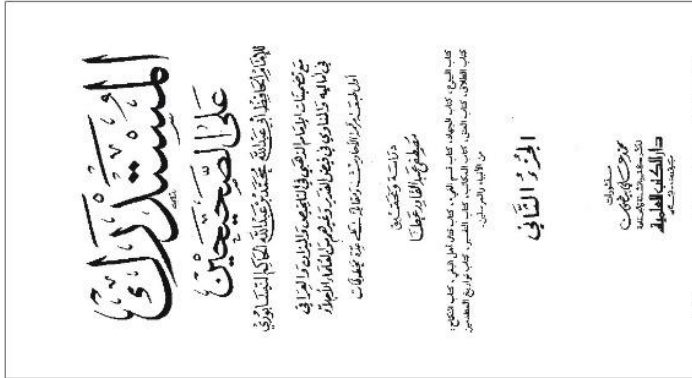 المستدرك
على الصحيحين
للإمام الحافظ أبي عبد الله محمد بن عبد الله الحاكم النيسابوري
مع تضمينات الإمام الذهبي في التلخيص والميزان والعراقي
في أماليه والمناوي في فيض القدير وغيرهم من العلماء الأجلاء
دراسة وتحقيق
مصطفى عبد القادر عطا
كتاب البيوع، كتاب الجهاد، كتاب قسم الفيء، كتاب قتال أهل البغي، كتاب النكاح،
كتاب الطلاق، كتاب العتق، كتاب المكاتب، كتاب التفسير، كتاب تواريخ المتقدمين
من الأنبياء والمرسلين.
الجزء الثاني
منشورات
محمد علي بيضون
دار الكتب العلمية